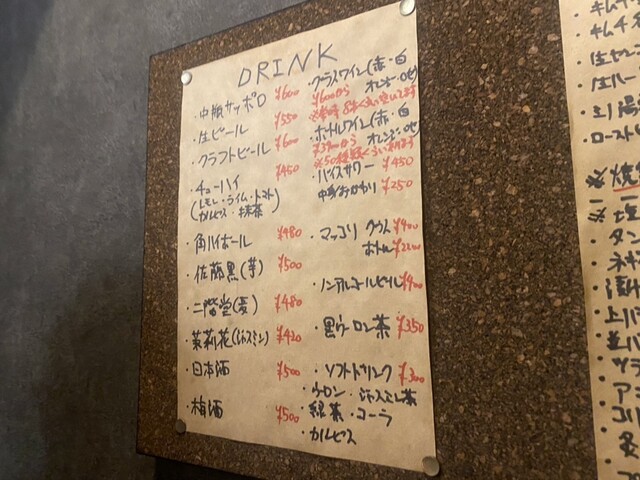 DRINK
・中瓶サッポロ ¥600
・生ビール ¥550
・クラフトビール ¥600
・チューハイ ¥450
(レモン・ライム・トマト
カルピス・抹茶)
・角ハイボール ¥480
・佐藤黒(芋) ¥500
・二階堂(麦) ¥480
・茉莉花(ジャスミン) ¥420
・日本酒 ¥500
・梅酒 ¥500
・グラスワイン(赤・白
オレンジ・ロゼ)
¥600から
・ボトルワイン(赤・白
オレンジ・ロゼ)
¥3900から
※50種類くらい
・バイスサワー ¥450
中身おかわり ¥250
・マッコリ グラス ¥400
ボトル ¥2200
・ノンアルコールビール ¥400
・黒ウーロン茶 ¥350
・ソフトドリンク ¥300
・ウーロン・ジャスミン茶
・緑茶・コーラ
・カルピス